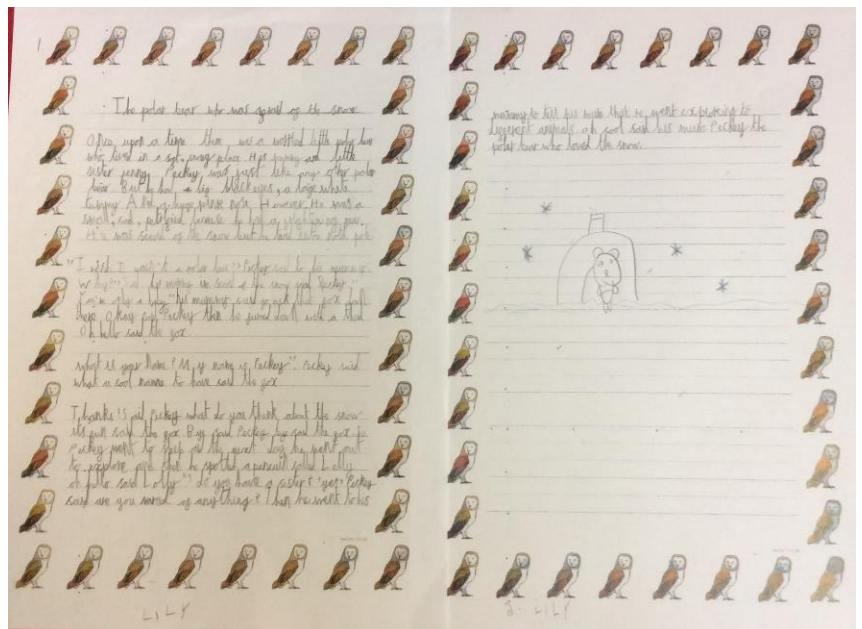 1.
The polar bear who was afraid of the snow
Once upon a time there was a little polar bear
who lived in a place. His mummy and little
sister penny. Peckey was just like any other polar
bear. But he had a big black eyes, a large white
tummy. And a huge nose. However. He was a
small, sad, because he had a
He was scared of the snow but he
"I wish I wasn't a polar bear" Peckey said to his mummy.
Why" said his mummy im scared of the snow said Peckey."
I'm only a "his mummy said go ask that fox
here. Okay said Peckey then he jumed down with a thud
Oh hello said the fox
what is your Name? My name is Peckey". Peckey said
what a cool name to have said the fox
Thanks Peckey what do you think about the snow
its fun said the fox Bye said Peckey bye said the fox
Peckey went to sleep and the next day he went out
to and then he spotted a called Lolly
oh hello said Lolly" do you have a sister? "yes" Peckey
said are you scared of anything? Then he went to his
LILY
mummy to tell his mum that he went to
different animals oh cool said his mum Peckey the
polar bear who loved the snow.
2. LILY